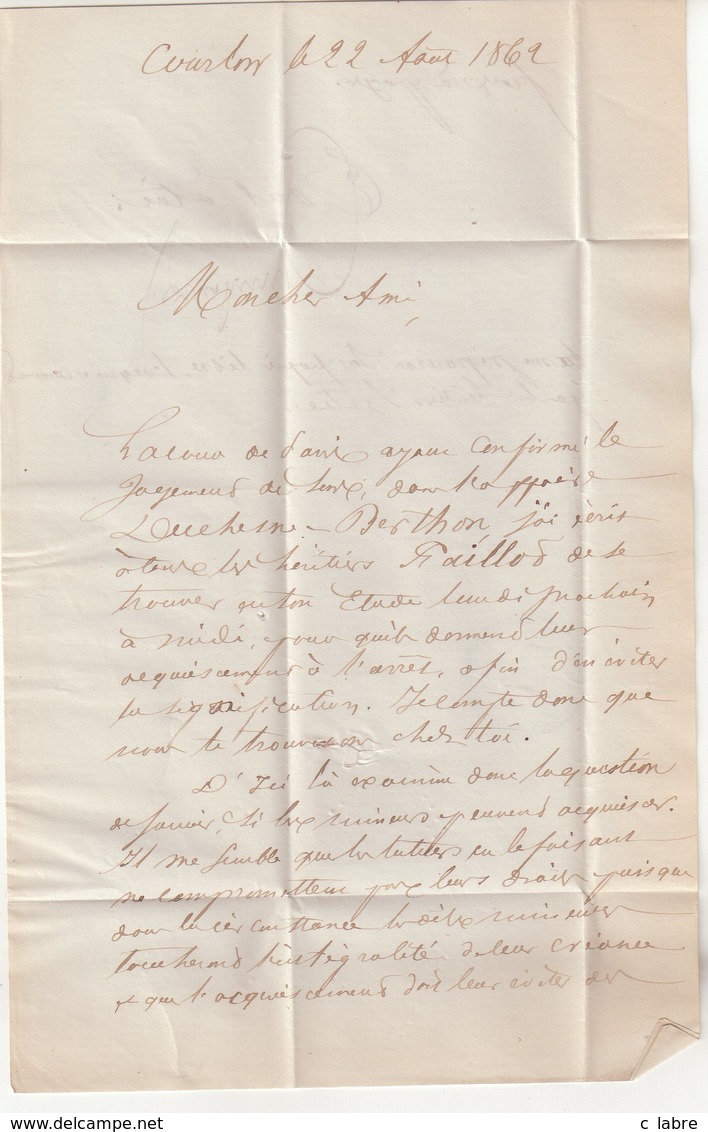 Courlon le 22 Août 1862
Mon cher Ami,
La cour de Paris ayant confirmé le
Jugement de Sens, dans l'a
Duchesne-Berthon, j'ai écrit
à tous les héritiers Faillot de se
trouver en ton Etude lundi prochain
à midi, pour qu'ils donnent leur
acquiescement à l'arrêt, afin d'en éviter
la signification. Je compte donc que
nous te trouverons chez toi.
D'Ici là examine donc la question
de savoir, si les mineurs peuvent acquiescer.
Il me semble que les tuteurs en le faisant
ne compromettent pas leurs droits puisque
dans la circonstance les dits mineurs
toucheront l'intégralité de leur créance
et que l'acquiescement doit leur éviter des
www.delcampe.net
c labre